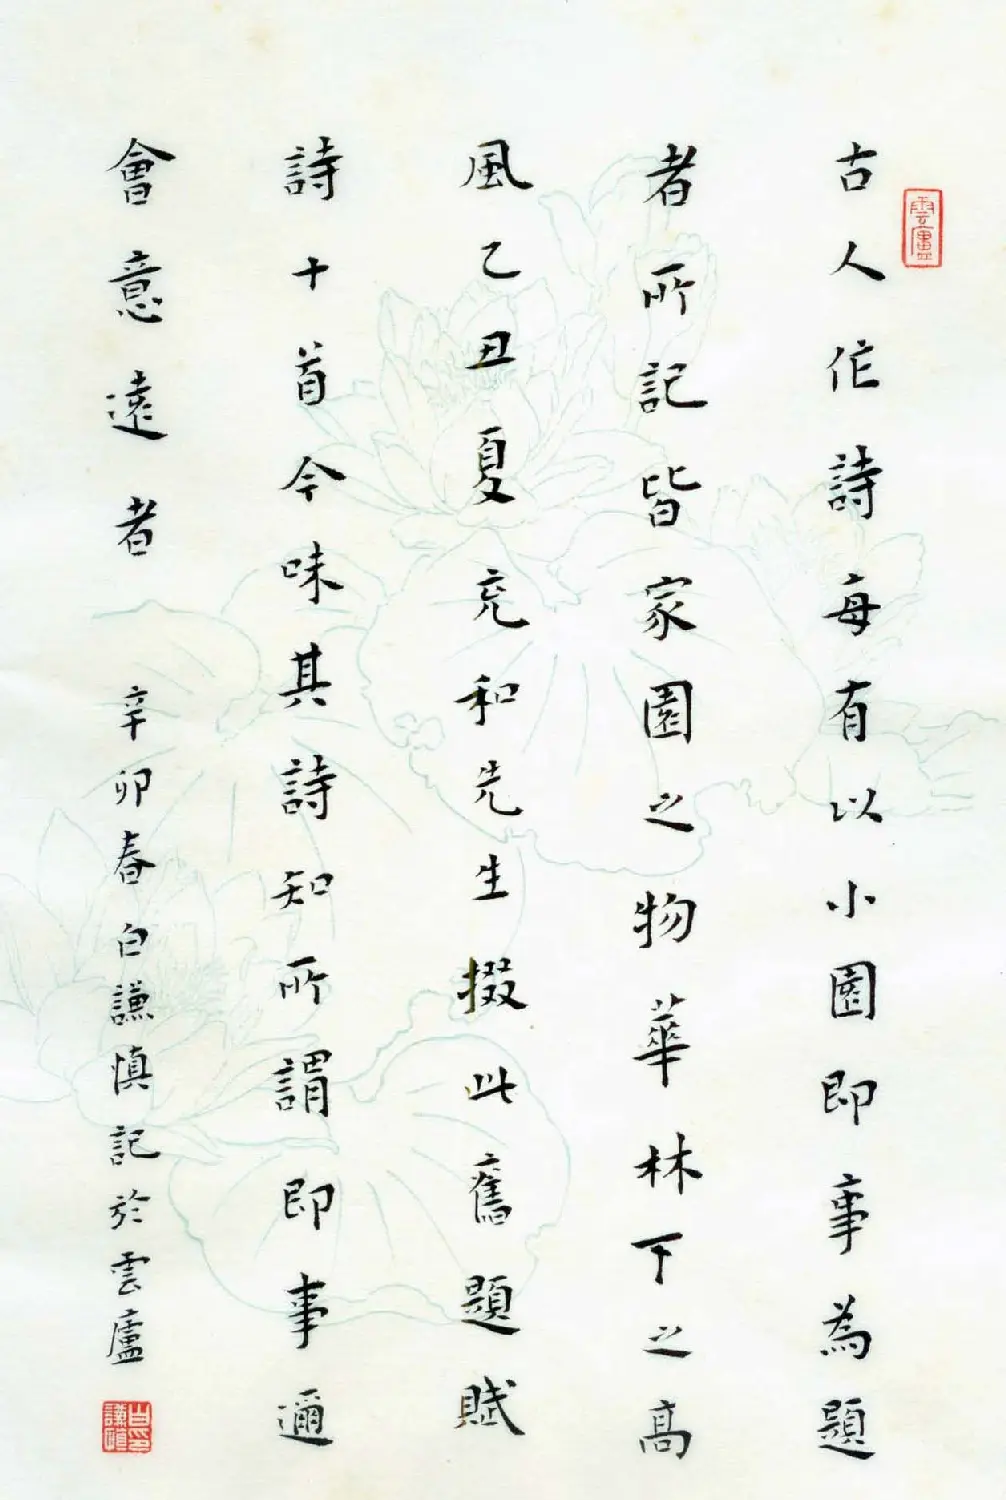 雲廬
古人作詩每有以小園即事為題
者所記皆家園之物華林下之高
風乙丑夏充和先生掇此舊題賦
詩十首今味其詩知所謂即事邇
會意遠者
辛卯春白謙慎記於雲廬
白謙慎印